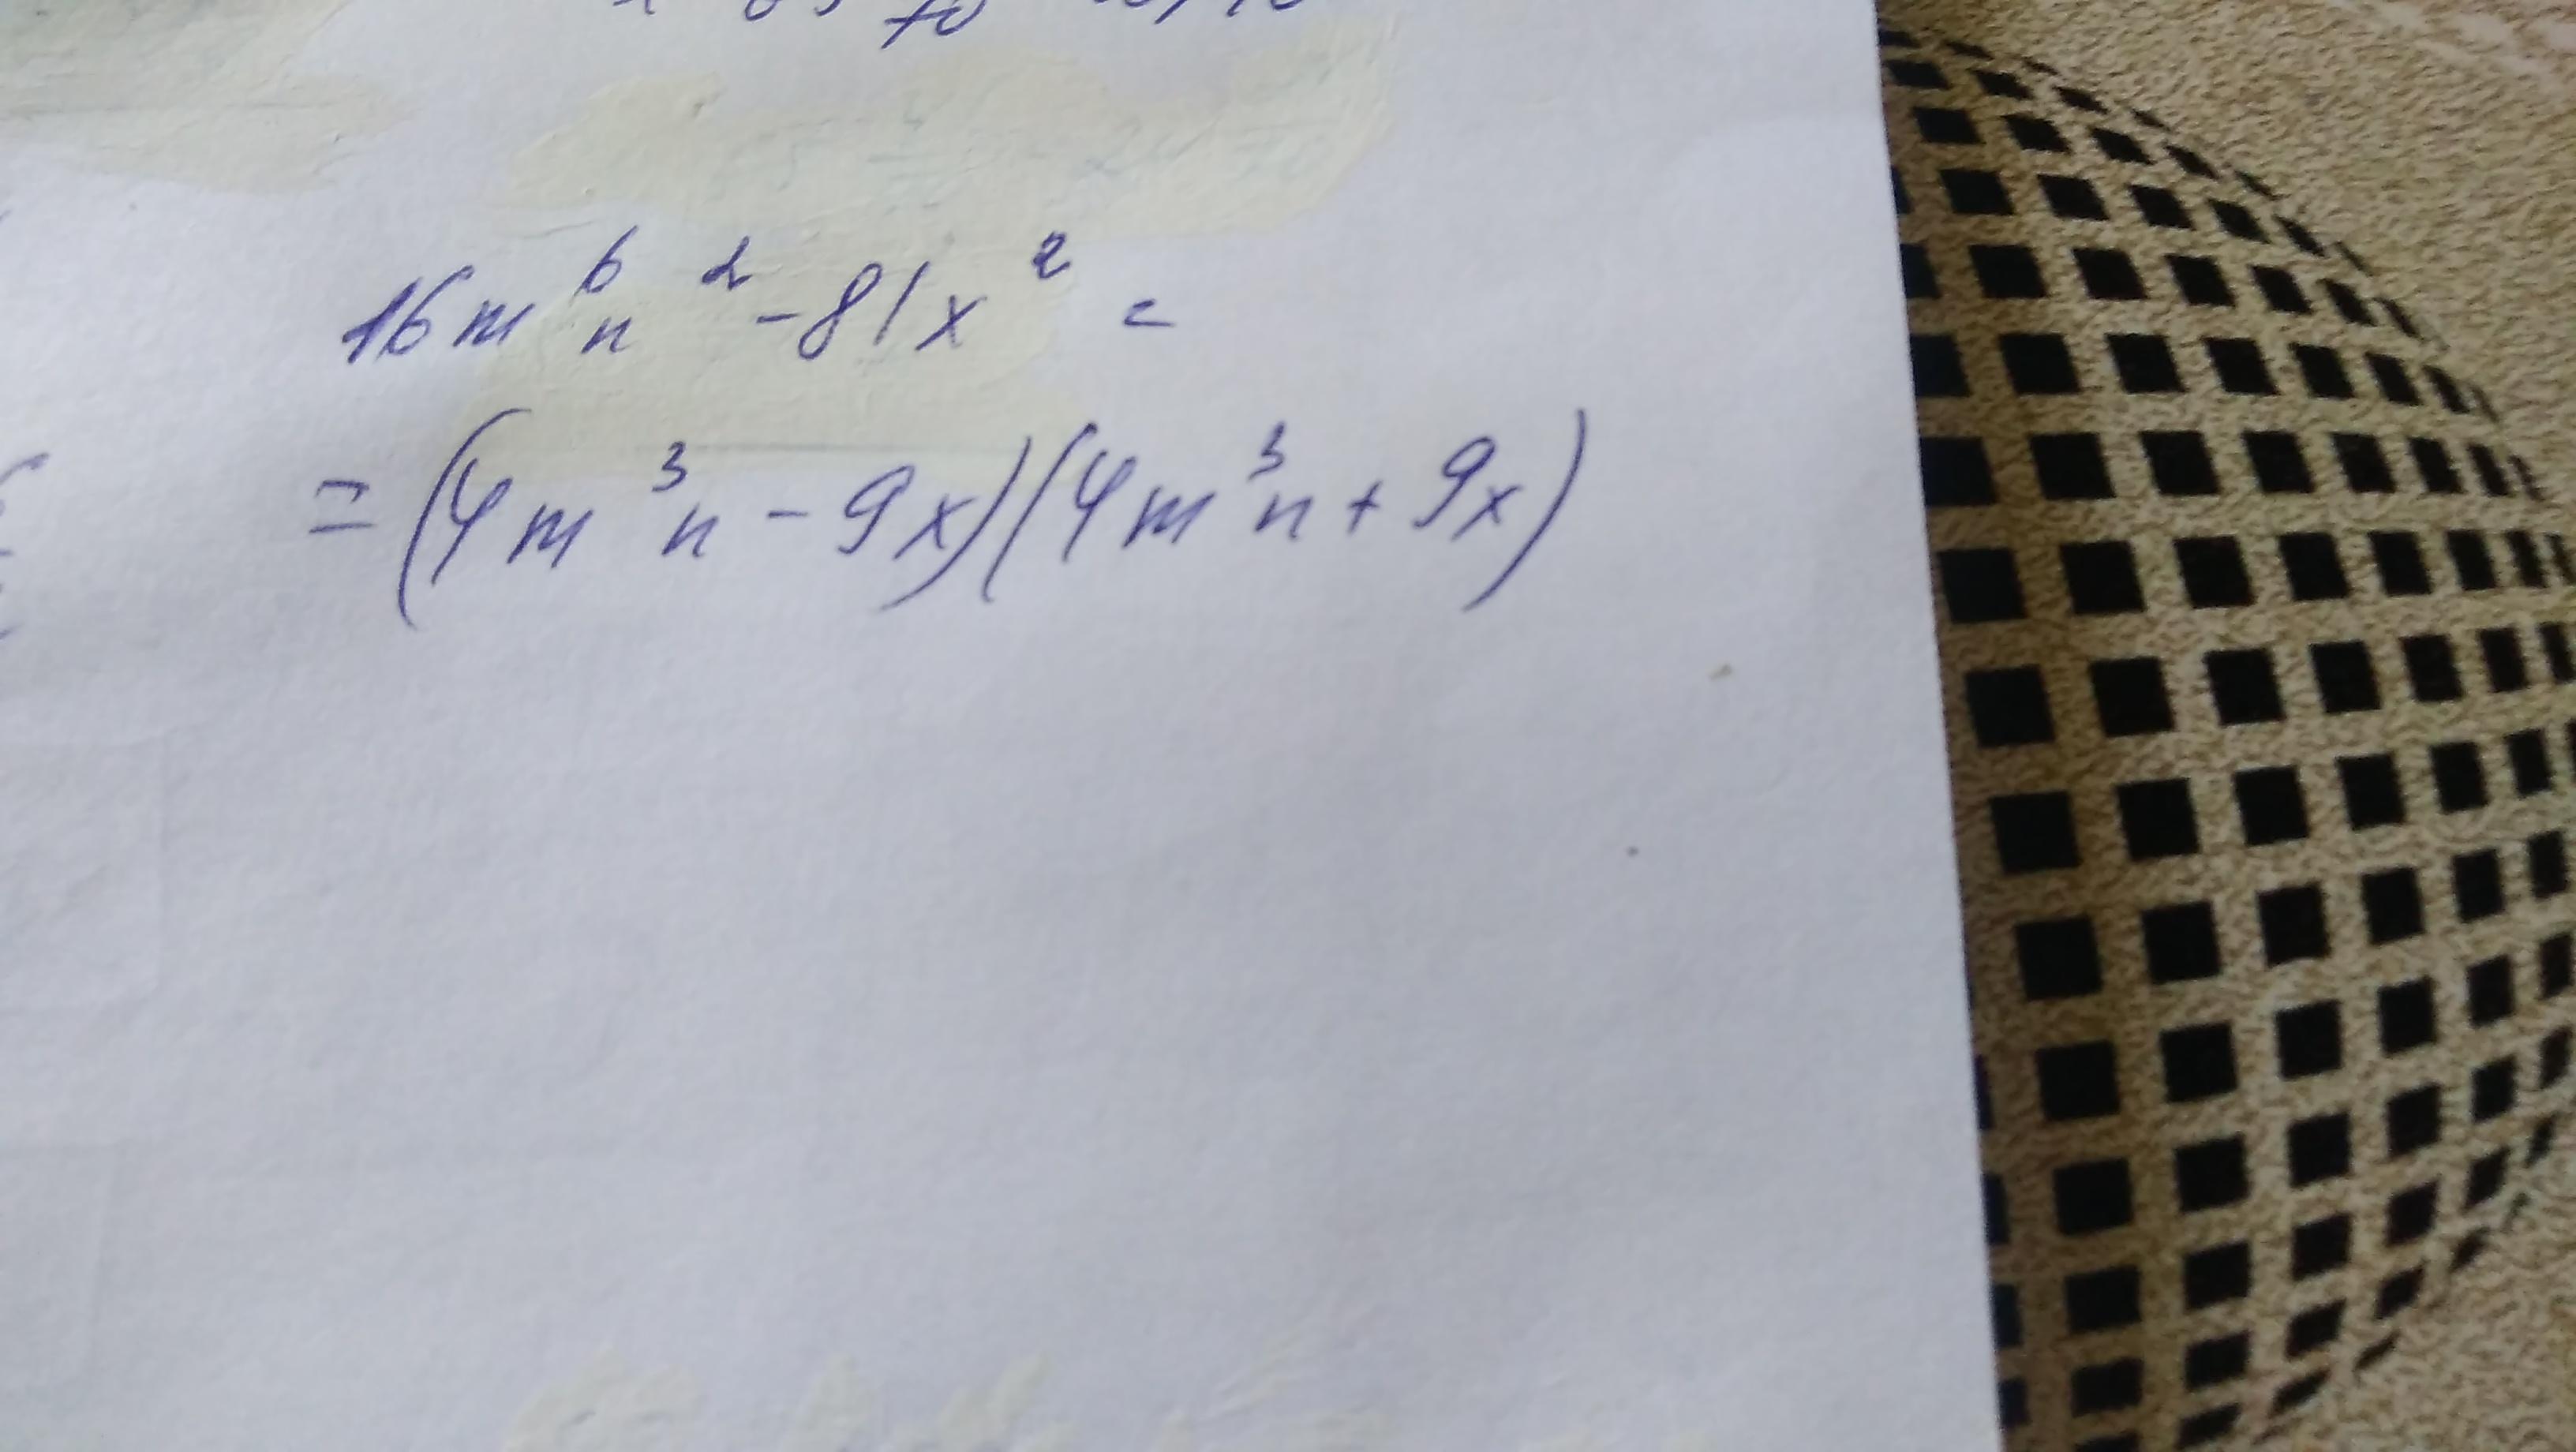 16m⁶n² - 81x² =
= (4m³n - 9x)(4m³n + 9x)